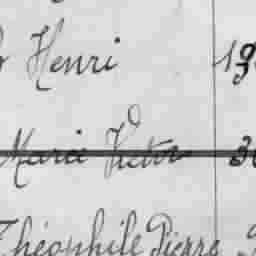 Henri
Marie Victor
Théophile Pierre